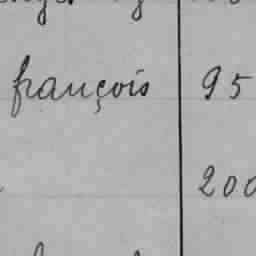 françois 95
200